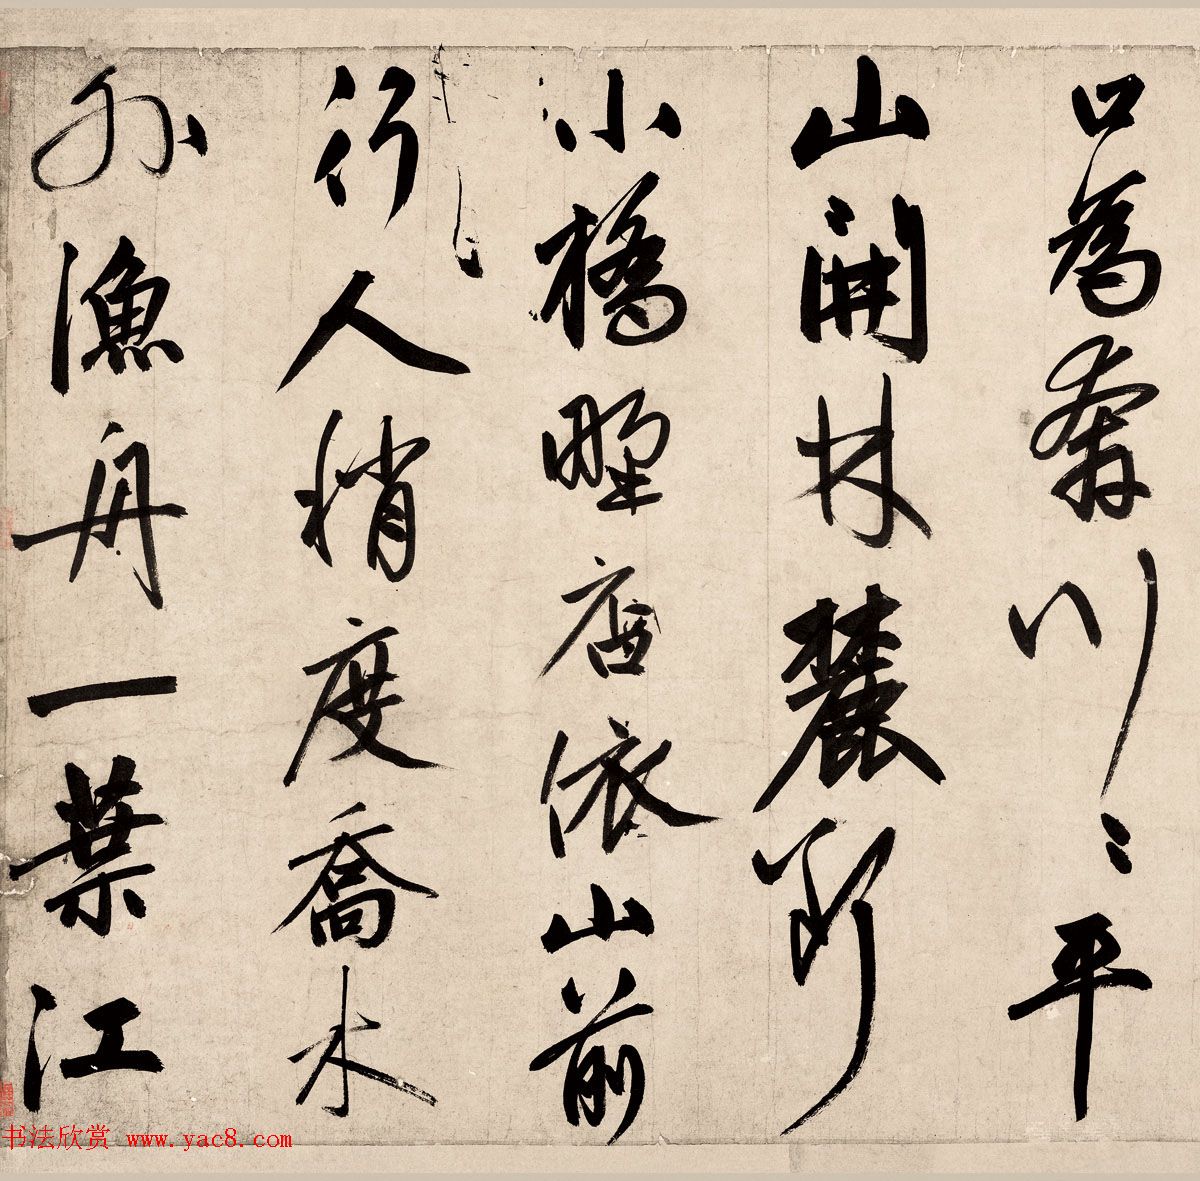 口為奔川〻平
山開林麓斷
小橋野店依山前
行人稍度喬木
外漁舟一葉江
书法欣赏 www.yac8.com